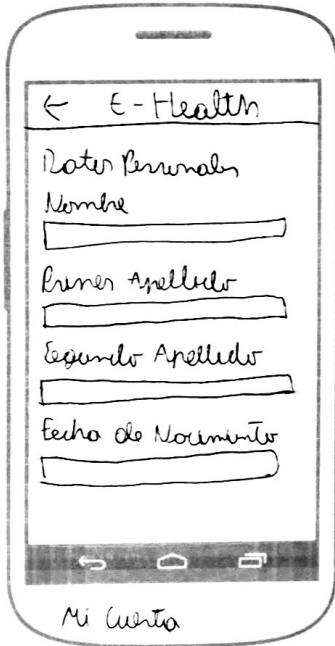 ← E-Health
Datos Personales
Nombre
Primer Apellido
Segundo Apellido
Fecha de Nacimiento
Mi Cuenta